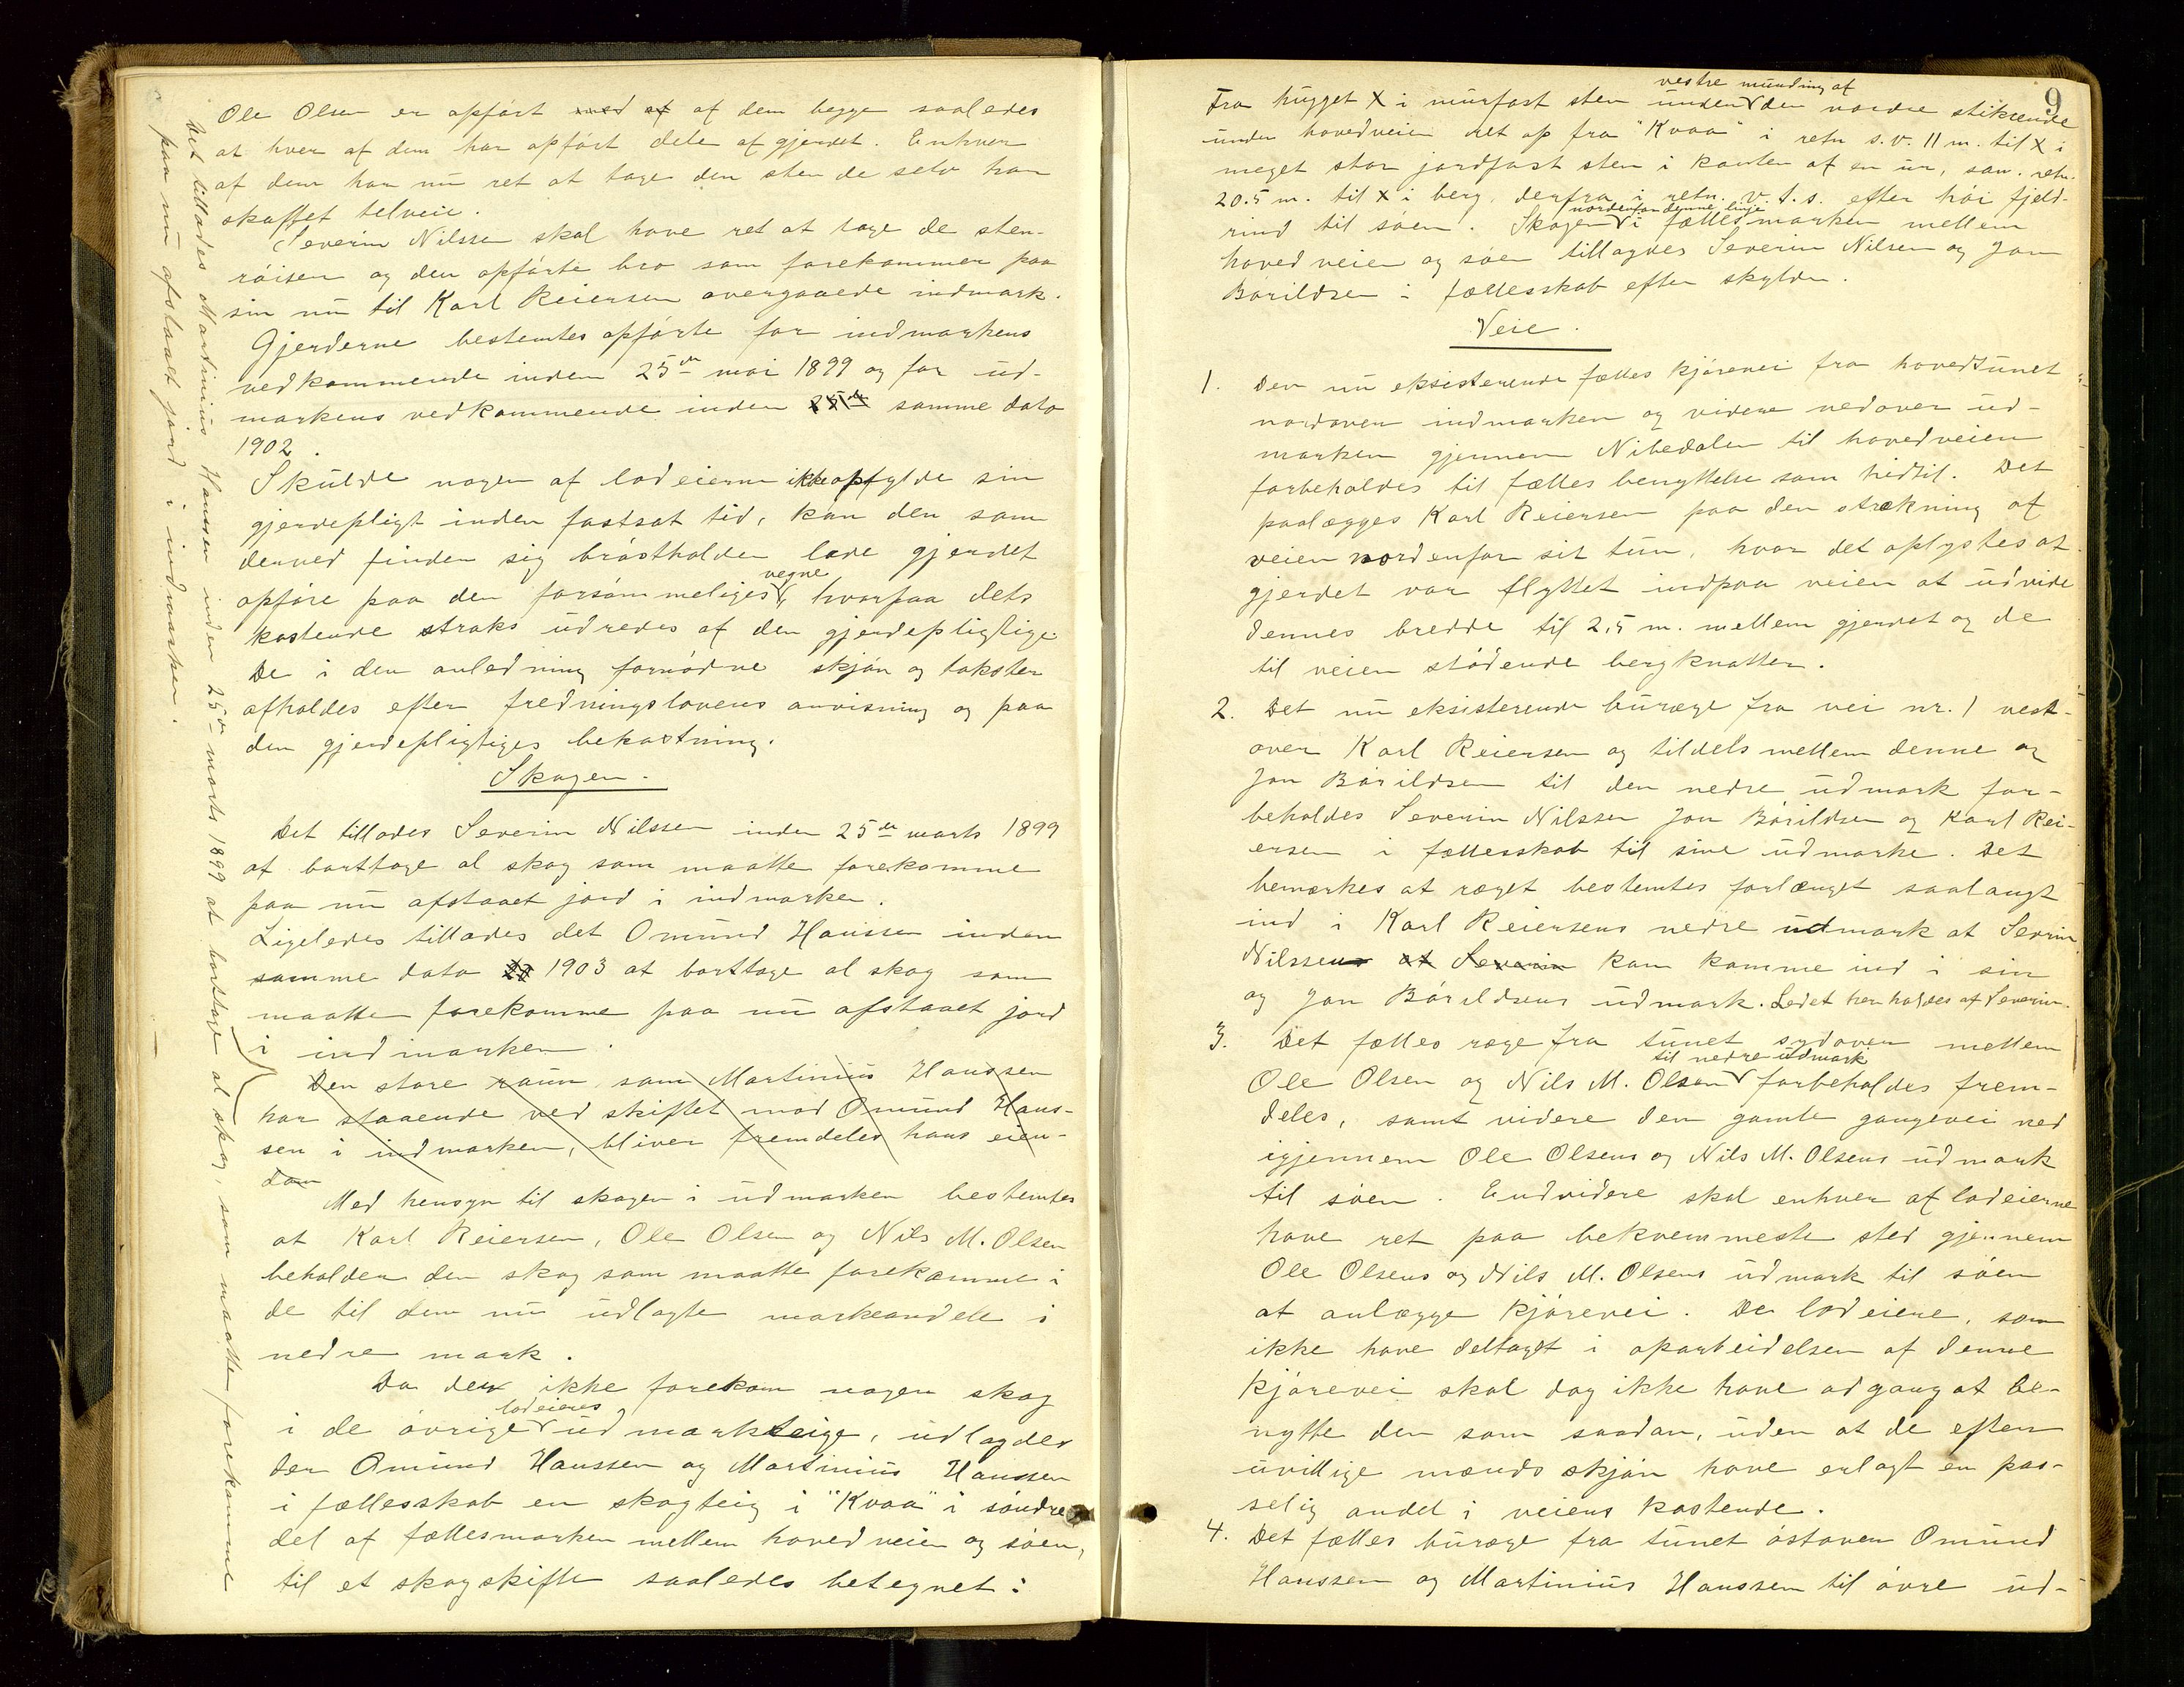 Ole Olsen er opført med af af dem begge saaledes
at hver af dem har opført dele af gjerdet. Enhver
af dem har nu ret at tage den sten de selv har
skaffet tilveie.
Severin Nilssen skal have ret at tage de sten-
röiser og den opförte bro som forekommer paa
sin nu til Karl Reiersen overgaaede indmark.
Gjerderne bestemtes opförte for indmarkens
vedkommende inden 25de mai 1899 og for ud-
markens vedkommende inden 25de samme dato
1902.
Skulde nogen af lodeierne ikke opfylde sin
gjerdepligt inden fastsat tid, kan den som
derved finder sig bröstholden lade gjerdet
opföre paa den forsömmeliges vegne, hvorpaa dets
kostende straks udredes af den gjerdepligtige.
De i den anledning fornödne skjön og takster
afholdes efter fredningslovens anvisning og paa
den gjerdepligtiges bekostning.
Skogen.
Det tillades Severin Nilssen inden 25de marts 1899
at borttage al skog som maatte forekomme
paa nu afstaaet jord i indmarken.
Ligeledes tillades det Omund Hanssen inden
samme dato 1903 at borttage al skog som
maatte forekomme paa nu afstaaet jord
i indmarken.
Den store raun som Martinius Hanssen
har staaende ved skiftet mod Omund Hans-
sen i indmarken, bliver fremdeles hans eien-
dom
Med hensyn til skogen i udmarken bestemtes
at Karl Reiersen, Ole Olsen og Nils M. Olsen
beholder den skog som maatte forekomme i
de til dem nu udlagte markeandele i
nedre mark.
Da der ikke forekom nogen skog
i de övrige lodeieres udmarksteige, udlagdes
der Omund Hanssen og Martinius Hanssen
i fællesskab en skogteig i "Kvaa" i söndre
del af fællesmarken mellem hovedveien og söen,
til et skogskifte saaledes betegnet:
Det tillades Martinius Hanssen inden 25de marts 1899 at borttage al skog, som maatte forekomme
paa nu afstaaet jord i indmarken.
9
Fra hugget X i murfast sten under vestre munding af den nordre stikrende
under hovedveien ret op fra "Kvaa" i retn s.v. 11 m. til X i
meget stor jordfast sten i kanten af en ur, sam. retn.
20.5 m. til X i berg, derfra i retn. v.t.s. efter höi fjeld-
rind til söen. Skogen nordenfor denne linje i fællesmarken mellem
hovedveien og söen tillagdes Severin Nilsen og Jon
Borildsen i fællesskab efter skylden.
Veie.
1. Den nu eksisterende fælles kjörevei fra hovedtunet
nordover indmarken og videre nedover ud-
marken gjennem Nibedalen til hovedveien
forbeholdes til fælles benyttelse som hidtil. Det
paalægges Karl Reiersen paa den strækning af
veien nordenfor sit tun, hvor det oplystes at
gjerdet var flyttet indpaa veien at udvide
dennes bredde til 2.5 m. mellem gjerdet og de
til veien stödende bergknatter.
2. Det nu eksisterende buræge fra vei nr. 1 vest-
over Karl Reiersen og tildels mellem denne og
Jon Börildsen til den nedre udmark for-
beholdes Severin Nilssen Jon Börildsen og Karl Rei-
ersen i fællesskab til sine udmarke. Det
bemærkes at ræget bestemtes forlænget saalangt
ind i Karl Reiersens nedre udmark at Severin
Nilssens at Severin kan komme ind i sin
og Jon Börildsens udmark. Ledet her holdes af Severin.
3. Det fælles ræge fra tunet sydover mellem
Ole Olsen og Nils M. Olsen til nedre udmark forbeholdes frem-
deles, samt videre den gamle gangevei ned
igjennem Ole Olsens og Nils M. Olsens udmark
til söen. Endvidere skal enhver af lodeierne
have ret paa bekvemmeste sted gjennem
Ole Olsens og Nils M. Olsens udmark til söen
at anlægge kjörevei. De lodeiere, som
ikke have deltaget i oparbeidelsen af denne
kjörevei skal dog ikke have adgang at be-
nytte den som saadan, uden at de efter
uvillige mænds skjön have erlagt en pas-
selig andel i veiens kostende.
4. Det fælles buræge fra tunet östover Omund
Hanssen og Martinius Hanssen til övre ud-